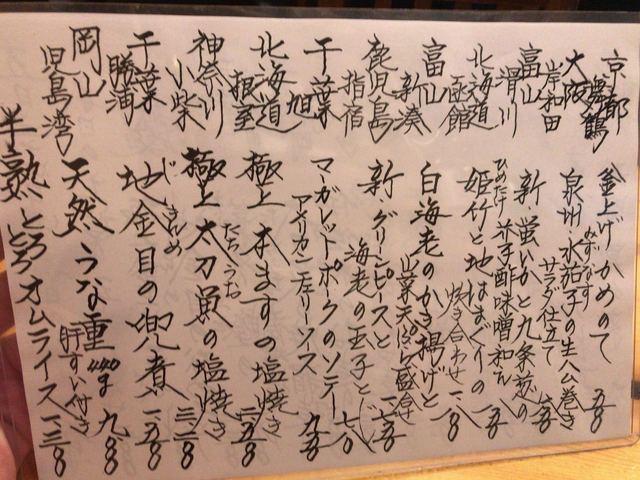 京都 舞鶴 釜上げかめのて 五八〇
大阪 岸和田 泉州・水茄子の生ハム巻き サラダ仕立て
みずなす
富山 滑川 新・蛍いかと九条葱の 芥子酢味噌和え
北海道 函館 姫竹と地はまぐりの 炊き合わせ
ひめたけ
富山 新湊 白海老のかき揚げと 山菜天ぷら盛合せ
鹿児島 指宿 新・グリーンピースと 海老の玉子とじ 七八〇
千葉 旭 マーガレットポークのソテー アメリカンチェリーソース 九五〇
北海道 根室 極上 本ますの塩焼き
神奈川 小柴 極上 太刀魚の塩焼き
たちうお
千葉 勝浦 地金目の兜煮 一、五八〇
じきんめ
岡山 児島湾 天然うな重 肝すい付き
半熟とろとろオムライス 一、三八〇